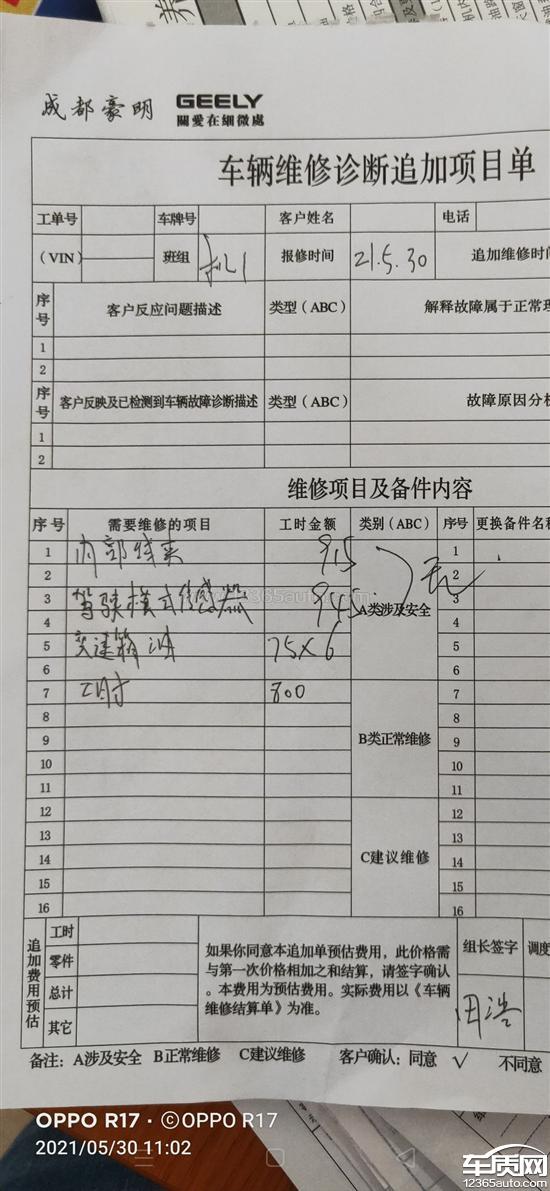 成都豪明 GEELY
關愛在細微處
车辆维修诊断追加项目单
工单号 车牌号 客户姓名 电话
(VIN) 班组 机1 报修时间 21.5.30 追加维修时间
序号 客户反应问题描述 类型(ABC) 解释故障属于正常理
1
2
序号 客户反映及已检测到车辆故障诊断描述 类型(ABC) 故障原因分析
1
2
维修项目及备件内容
序号 需要维修的项目 工时金额 类别(ABC) 序号 更换备件名称
1 内部线束 915 1
2 2
3 驾驶模式传感器 945 A类涉及安全 3
4 4
5 变速箱油 75×6 5
6 6
7 工时 800 7
8 8
9 B类正常维修 9
10 10
11 11
12 12
13 13
14 C建议维修 14
15 15
16 16
追加费用预估 工时 零件 总计 其它
如果你同意本追加单预估费用，此价格需
与第一次价格相加之和结算，请签字确认
。本费用为预估费用。实际费用以《车辆
维修结算单》为准。
组长签字 调度
田浩
备注：A涉及安全 B正常维修 C建议维修 客户确认：同意 √ 不同意
OPPO R17 · ©OPPO R17
2021/05/30 11:02
车质网
12365auto.com